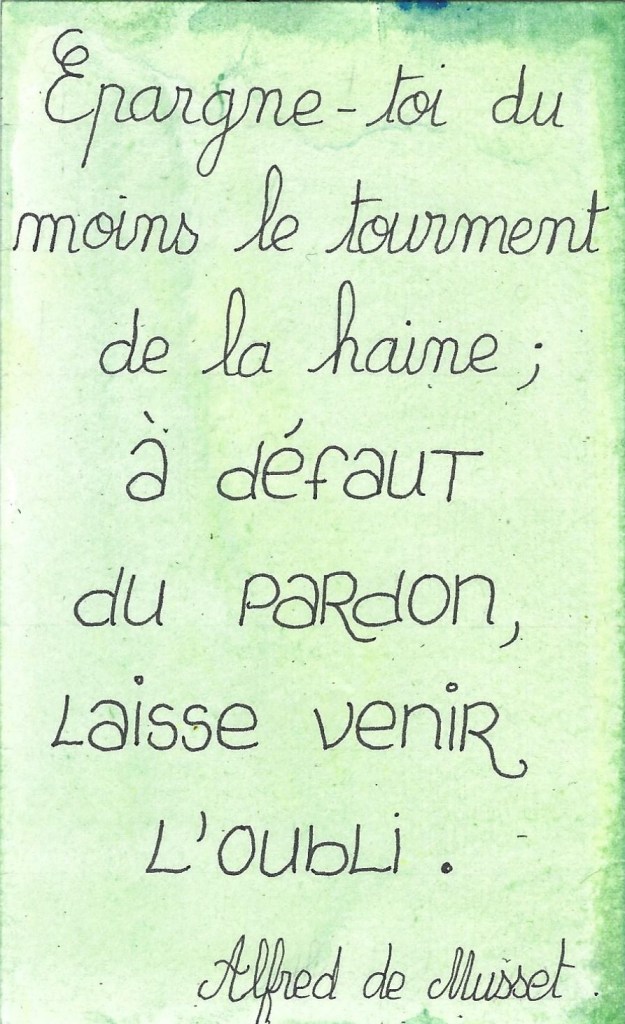 Épargne-toi du
moins le tourment
de la haine ;
à défaut
du pardon,
laisse venir
l'oubli.
Alfred de Musset.